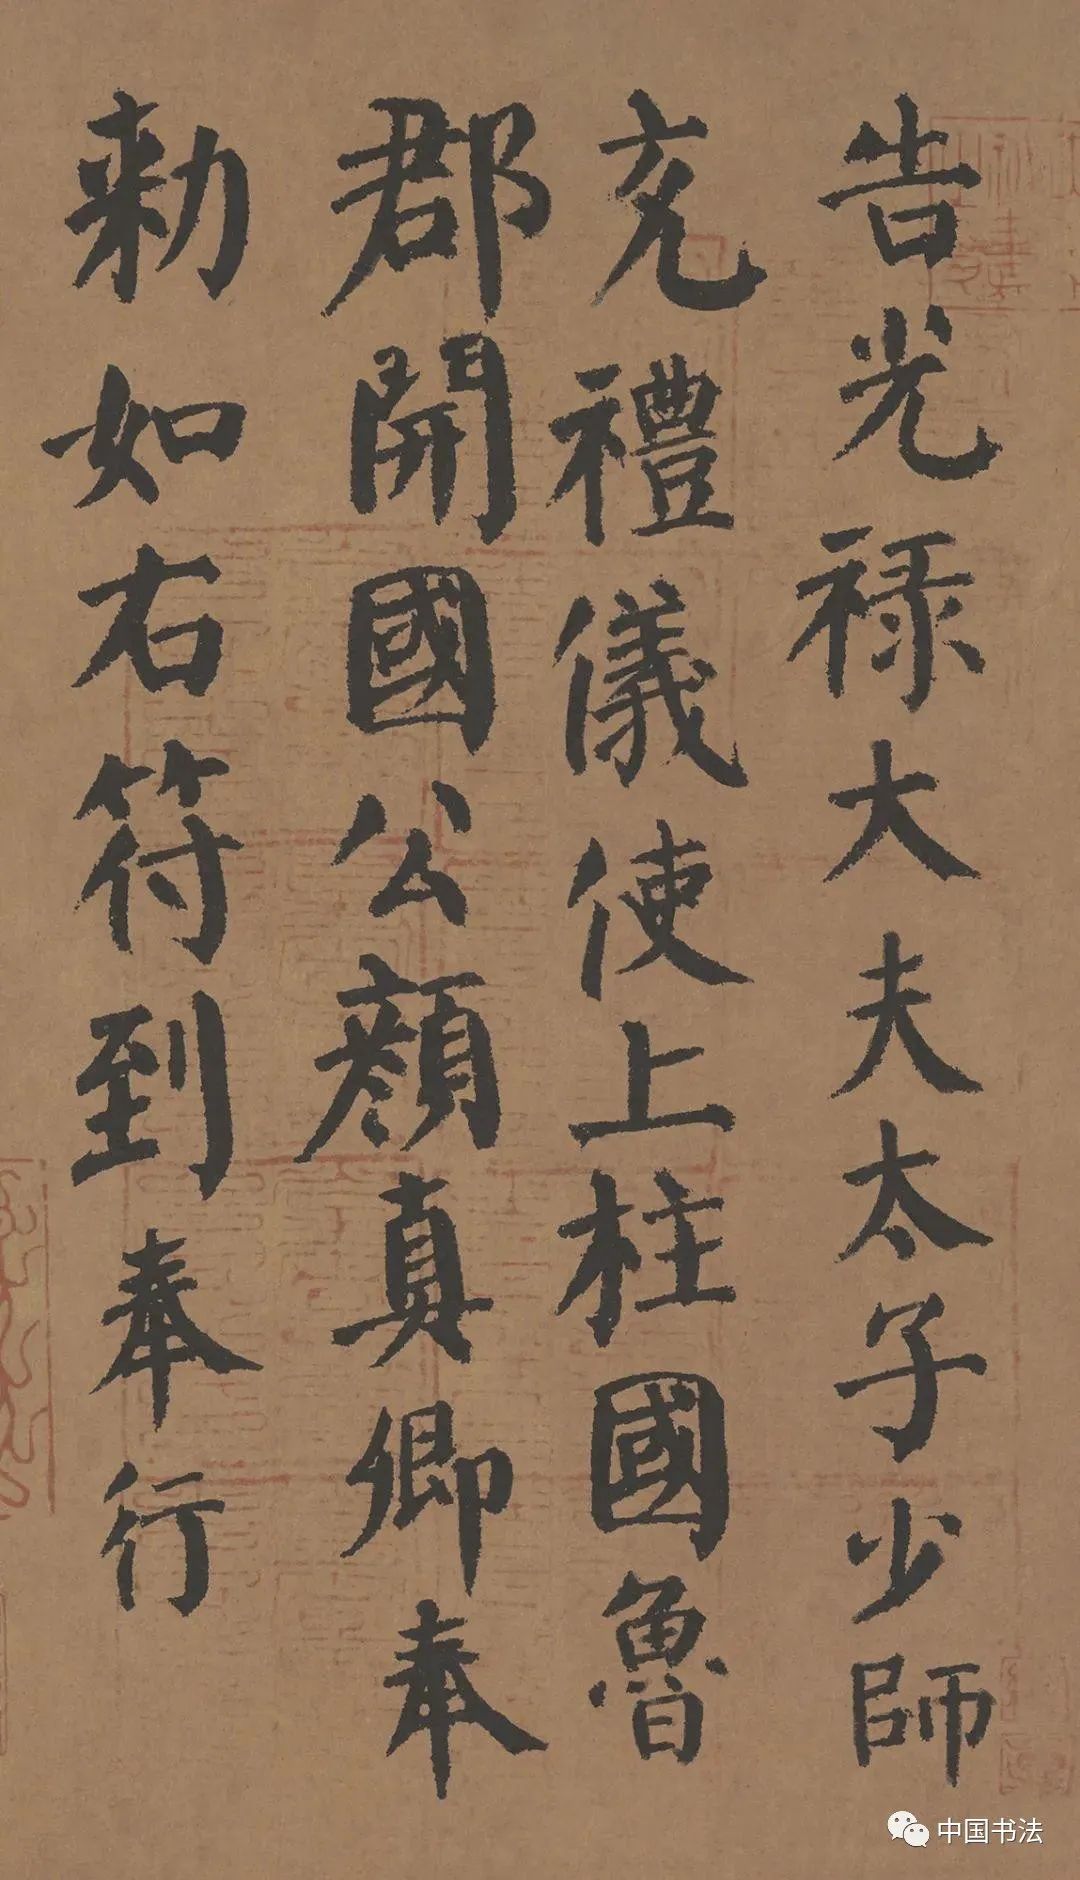 告光禄大夫太子少師
充禮儀使上柱國魯
郡開國公顔真卿奉
勑如右符到奉行
中国书法